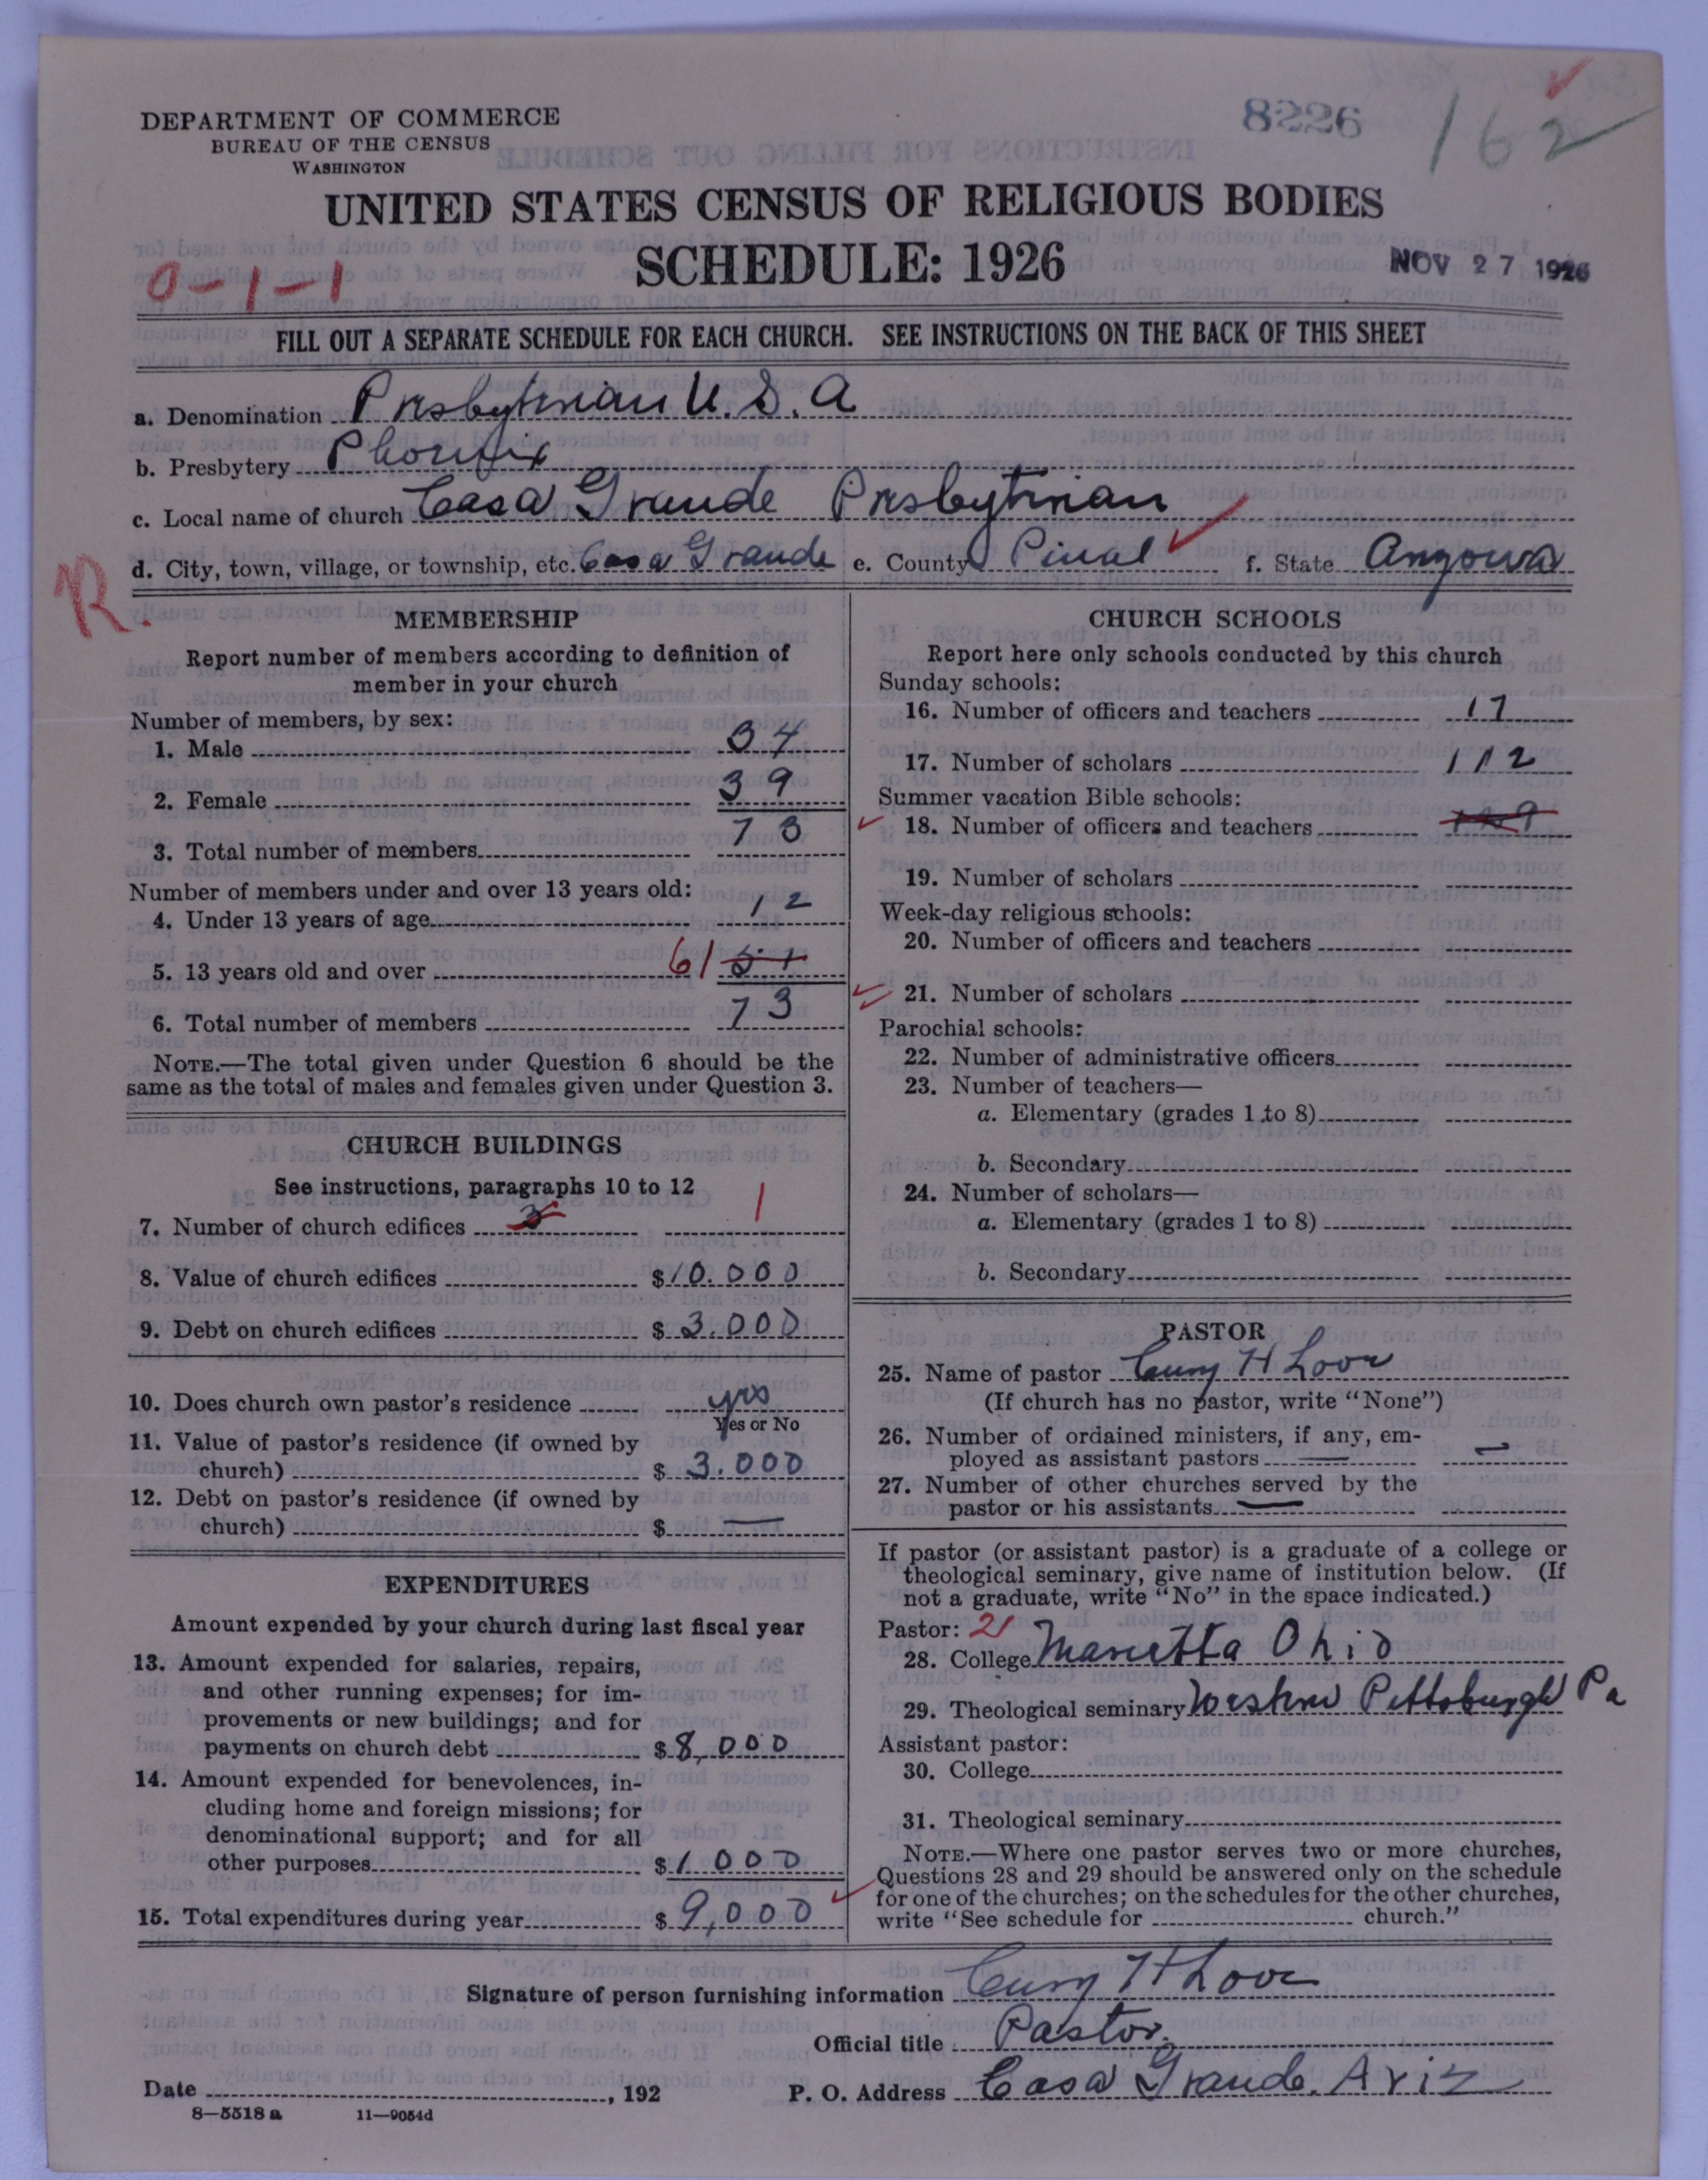 8226
162
DEPARTMENT OF COMMERCE
BUREAU OF THE CENSUS
WASHINGTON
UNITED STATES CENSUS OF RELIGIOUS BODIES
SCHEDULE: 1926
NOV 27 1926
0-1-1
FILL OUT A SEPARATE SCHEDULE FOR EACH CHURCH. SEE INSTRUCTIONS ON THE BACK OF THIS SHEET
a. Denomination Presbyterian U. S. A
b. Presbytery Phoenix
c. Local name of church Casa Grande Presbyterian
d. City, town, village, or township, etc. Casa Grande e. County Pinal f. State Arizona
R.
MEMBERSHIP
Report number of members according to definition of
member in your church
Number of members, by sex:
1. Male 34
2. Female 39
3. Total number of members 73
Number of members under and over 13 years old:
4. Under 13 years of age 12
5. 13 years old and over 61 51
6. Total number of members 73
NOTE.—The total given under Question 6 should be the
same as the total of males and females given under Question 3.
CHURCH BUILDINGS
See instructions, paragraphs 10 to 12
7. Number of church edifices 3 1
8. Value of church edifices $10.000
9. Debt on church edifices $3.000
10. Does church own pastor's residence yes
Yes or No
11. Value of pastor's residence (if owned by
church) $3.000
12. Debt on pastor's residence (if owned by
church) $ —
EXPENDITURES
Amount expended by your church during last fiscal year
13. Amount expended for salaries, repairs,
and other running expenses; for im-
provements or new buildings; and for
payments on church debt $8,000
14. Amount expended for benevolences, in-
cluding home and foreign missions; for
denominational support; and for all
other purposes $1000
15. Total expenditures during year $9,000
CHURCH SCHOOLS
Report here only schools conducted by this church
Sunday schools:
16. Number of officers and teachers 17
17. Number of scholars 112
Summer vacation Bible schools:
18. Number of officers and teachers
19. Number of scholars
Week-day religious schools:
20. Number of officers and teachers
21. Number of scholars
Parochial schools:
22. Number of administrative officers
23. Number of teachers—
a. Elementary (grades 1 to 8)
b. Secondary
24. Number of scholars—
a. Elementary (grades 1 to 8)
b. Secondary
PASTOR
25. Name of pastor H Love
(If church has no pastor, write "None")
26. Number of ordained ministers, if any, em-
ployed as assistant pastors — —
27. Number of other churches served by the
pastor or his assistants —
If pastor (or assistant pastor) is a graduate of a college or
theological seminary, give name of institution below. (If
not a graduate, write "No" in the space indicated.)
Pastor: 21
28. College Marietta Ohio
29. Theological seminary Western Pittsburgh Pa
Assistant pastor:
30. College
31. Theological seminary
NOTE.—Where one pastor serves two or more churches,
Questions 28 and 29 should be answered only on the schedule
for one of the churches; on the schedules for the other churches,
write "See schedule for church."
Signature of person furnishing information H Love
Official title Pastor.
Date , 192
P. O. Address Casa Grande, Ariz
8—5518 a 11—9054d